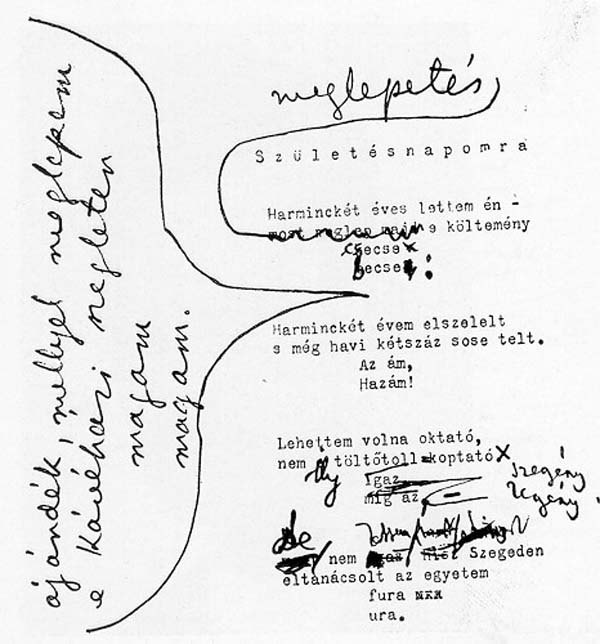 meglepetés
Születésnapomra
Harminckét éves lettem én -
e költemény
csecse
becse:
ajándék, mellyel meglepem
e kávéházi szegleten
magam
magam.
Harminckét évem elszelelt
s még havi kétszáz sose telt.
Az ám,
Hazám!
Lehettem volna oktató,
nem ily töltőtoll koptató
szegény
legény.
De nem Szegeden
eltanácsolt az egyetem
fura
ura.